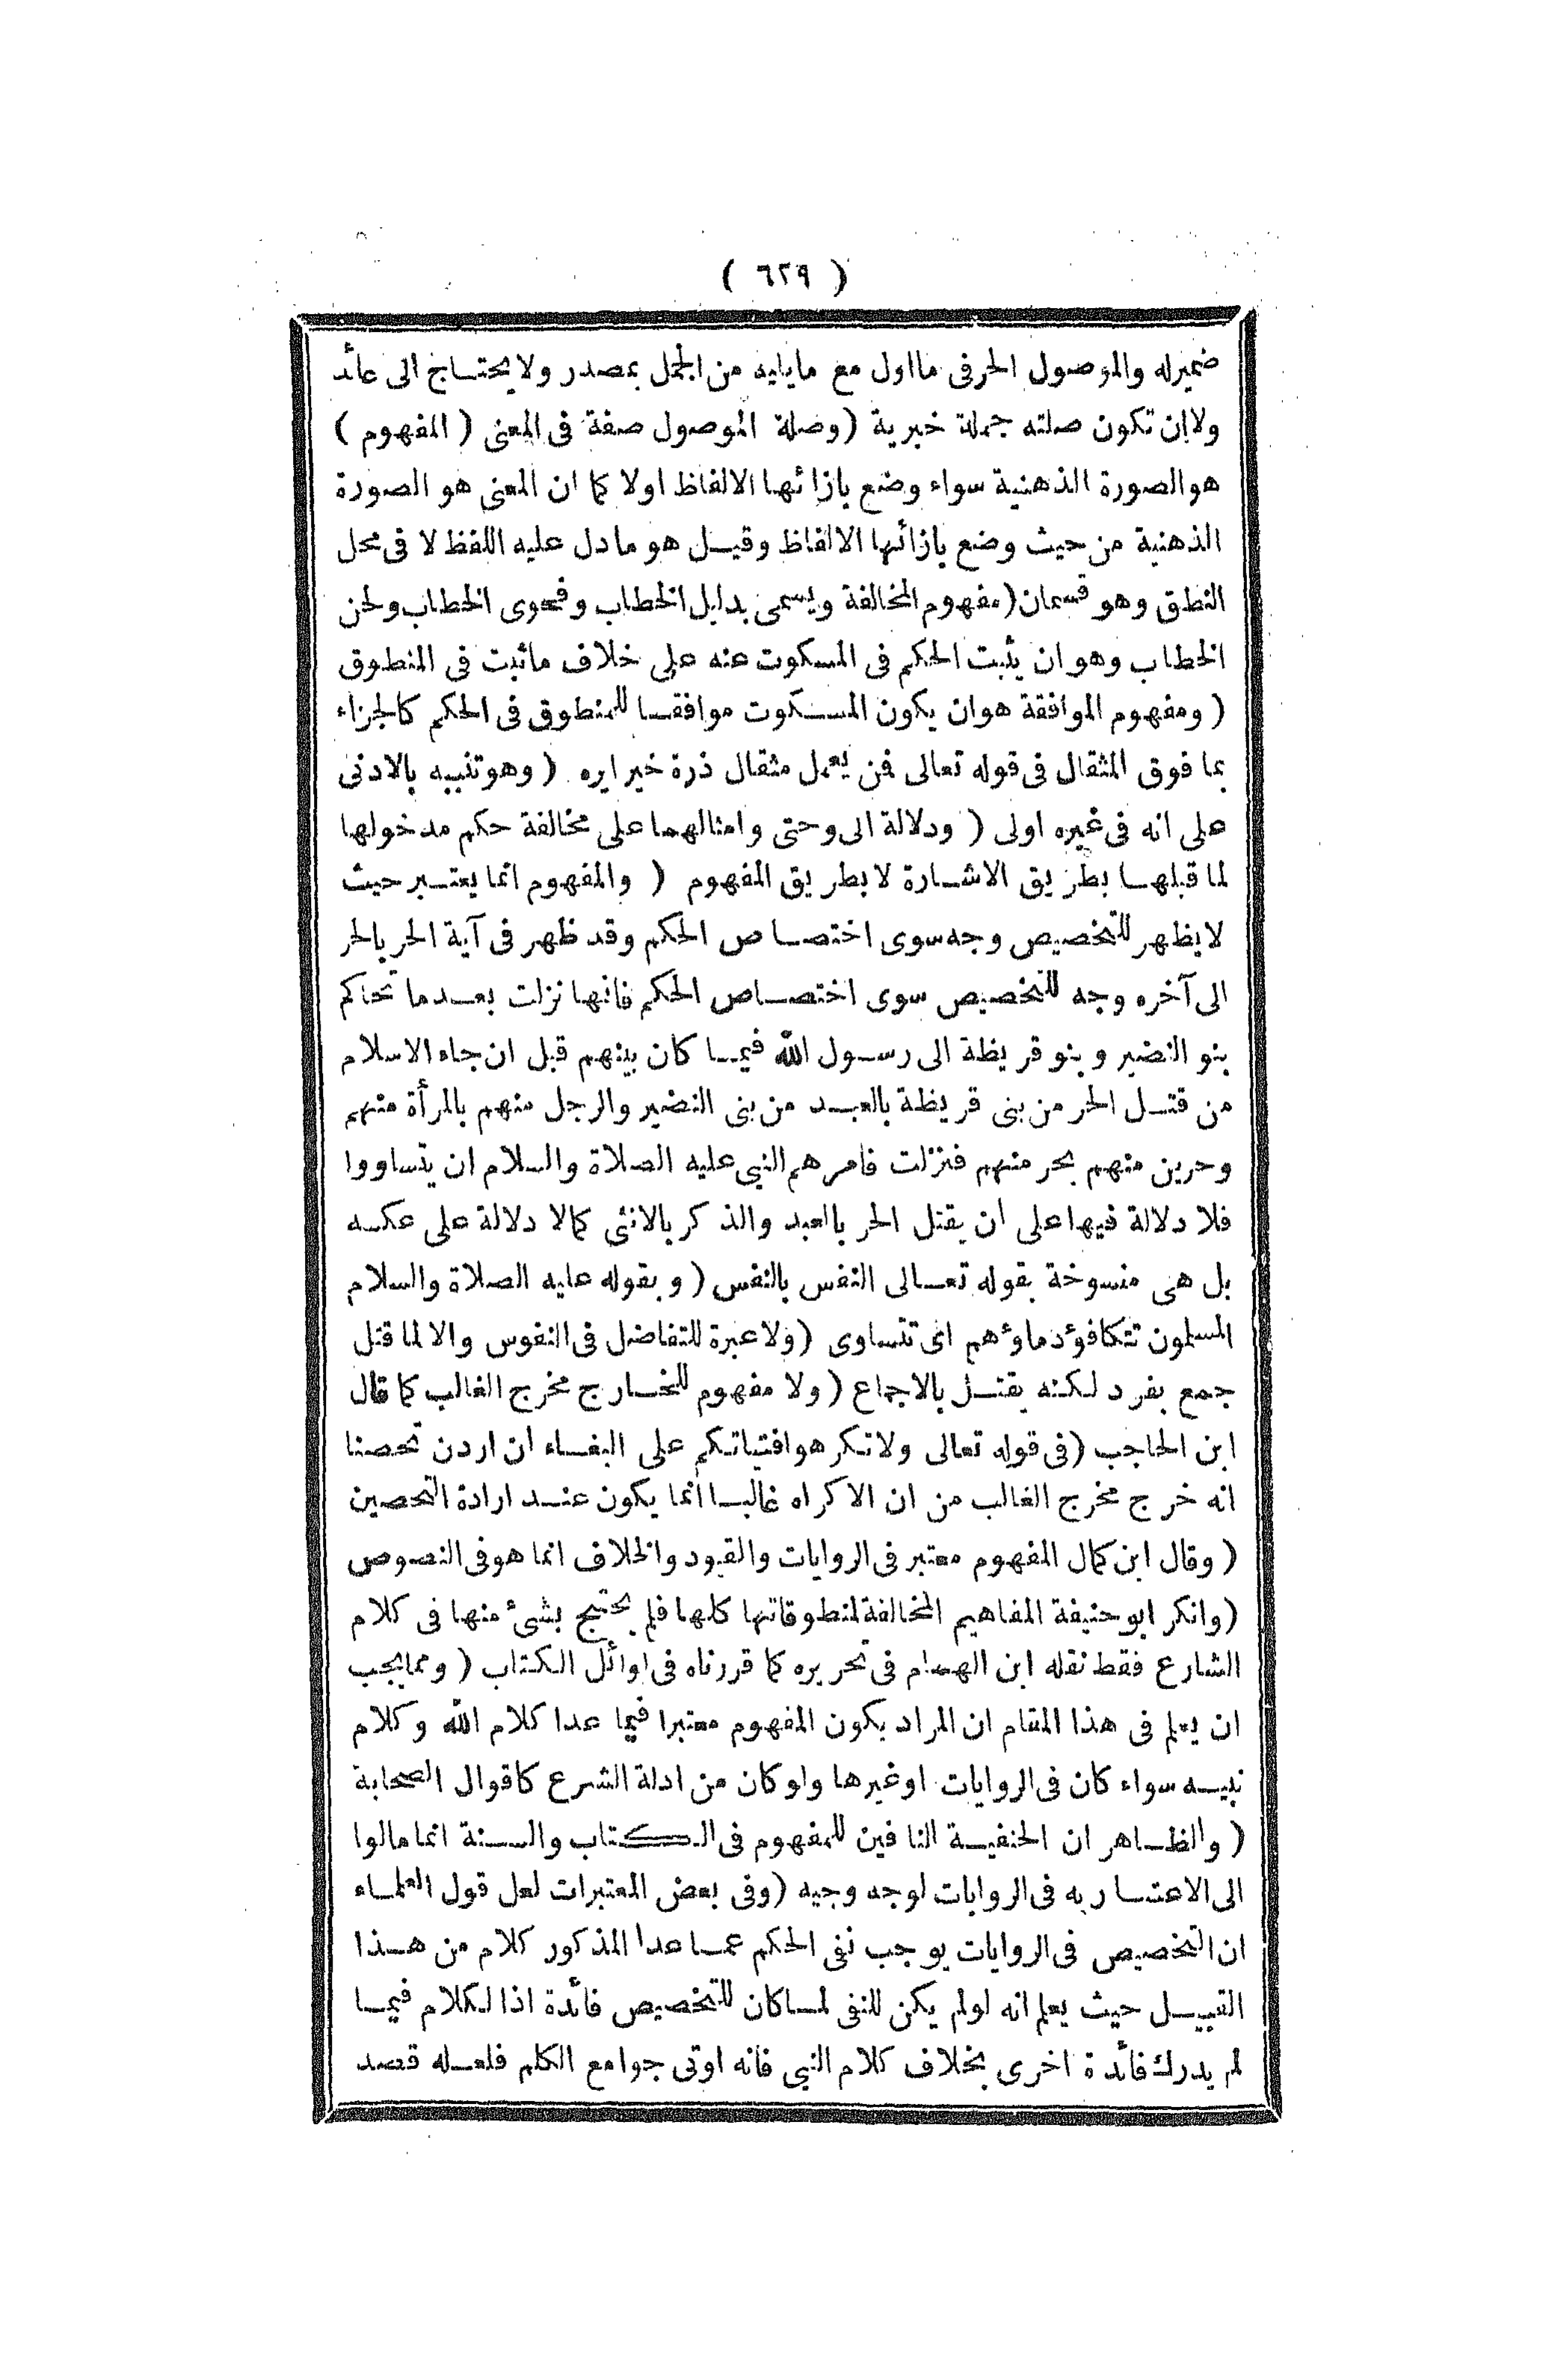 ( ٦٢٩ )
ضميرله والموصول الحرفى مااول مع مايليه من الجمل بمصدر ولايحتاج الى عائد
ولاان تكون صلته جملة خبرية (وصلة الموصول صفة فى المعنى ( المفهوم )
هو الصورة الذهنية سواء وضع بازائها الالفاظ اولا كما ان المعنى هو الصورة
الذهنية من حيث وضع بازائها الالفاظ وقيل هو مادل عليه اللفظ لا فى محل
النطق وهو قسمان (مفهوم المخالفة ويسمى بدليل الخطاب وفحوى الخطاب ولحن
الخطاب وهو ان يثبت الحكم فى المسكوت عنه على خلاف ماثبت فى المنطوق
( ومفهوم الموافقة هوان يكون المسكوت موافقا للمنطوق فى الحكم كالجزاء
بما فوق المثقال فى قوله تعالى فمن يعمل مثقال ذرة خيرايره ( وهو تنبيه بالادنى
على انه فى غيره اولى ( ودلالة الى وحتى وامثالهما على مخالفة حكم مدخولها
لما قبلها بطريق الاشارة لا بطريق المفهوم ( والمفهوم انما يعتبر حيث
لايظهر للتخصيص وجه سوى اختصاص الحكم وقد ظهر فى آية الحر بالحر
الى آخره وجه للتخصيص سوى اختصاص الحكم فانها نزلت بعدما تحاكم
بنو النضير وبنو قريظة الى رسول الله فيما كان بينهم قبل ان جاء الاسلام
من قتل الحر من بنى قريظة بالعبد من بنى النضير والرجل منهم بالمرأة منهم
وحرين منهم بحر منهم فنزلت فامرهم النبى عليه الصلاة والسلام ان يتساووا
فلا دلالة فيها على ان يقتل الحر بالعبد والذكر بالانثى كمالا دلالة على عكسه
بل هى منسوخة بقوله تعالى النفس بالنفس ( وبقوله عليه الصلاة والسلام
المسلمون تتكافؤ دماؤهم اى تتساوى (ولا عبرة للتفاضل فى النفوس والا لما قتل
جمع بفرد لكنه يقتل بالاجماع ( ولا مفهوم للخارج مخرج الغالب كما قال
ابن الحاجب (فى قوله تعالى ولاتكرهوا فتياتكم على البغاء ان اردن تحصنا
انه خرج مخرج الغالب من ان الاكراه غالبا انما يكون عند ارادة التحصين
( وقال ابن كمال المفهوم معتبر فى الروايات والقيود والخلاف انما هو فى النصوص
(وانكر ابو حنيفة المفاهيم المخالفة لمنطوقاتها كلها فلم يحتج بشئ منها فى كلام
الشارع فقط نقله ابن الهمام فى تحريره كما قررناه فى اوائل الكتاب ( ومما يجب
ان يعلم فى هذا المقام ان المراد بكون المفهوم معتبرا فيما عدا كلام الله وكلام
نبيه سواء كان فى الروايات اوغيرها ولو كان من ادلة الشرع كاقوال الصحابة
( والظاهر ان الحنفية النافين للمفهوم فى الكتاب والسنة انما مالوا
الى الاعتبار به فى الروايات لوجه وجيه (وفى بعض المعتبرات لعل قول العلماء
ان التخصيص فى الروايات يوجب نفى الحكم عما عدا المذكور كلام من هذا
القبيل حيث يعلم انه لولم يكن للنفى لما كان للتخصيص فائدة اذا لكلام فيما
لم يدرك فائدة اخرى بخلاف كلام النبى فانه اوتى جوامع الكلم فلعله قصد